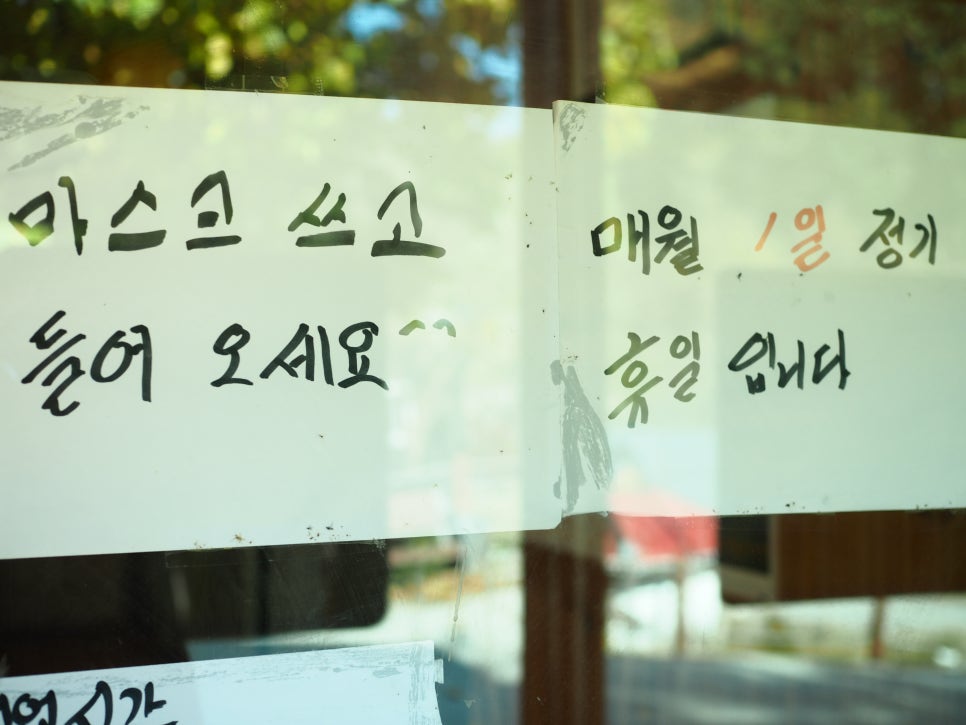 마스크 쓰고
들어 오세요^^
매월 1일 정기
휴일 입니다
영업시간